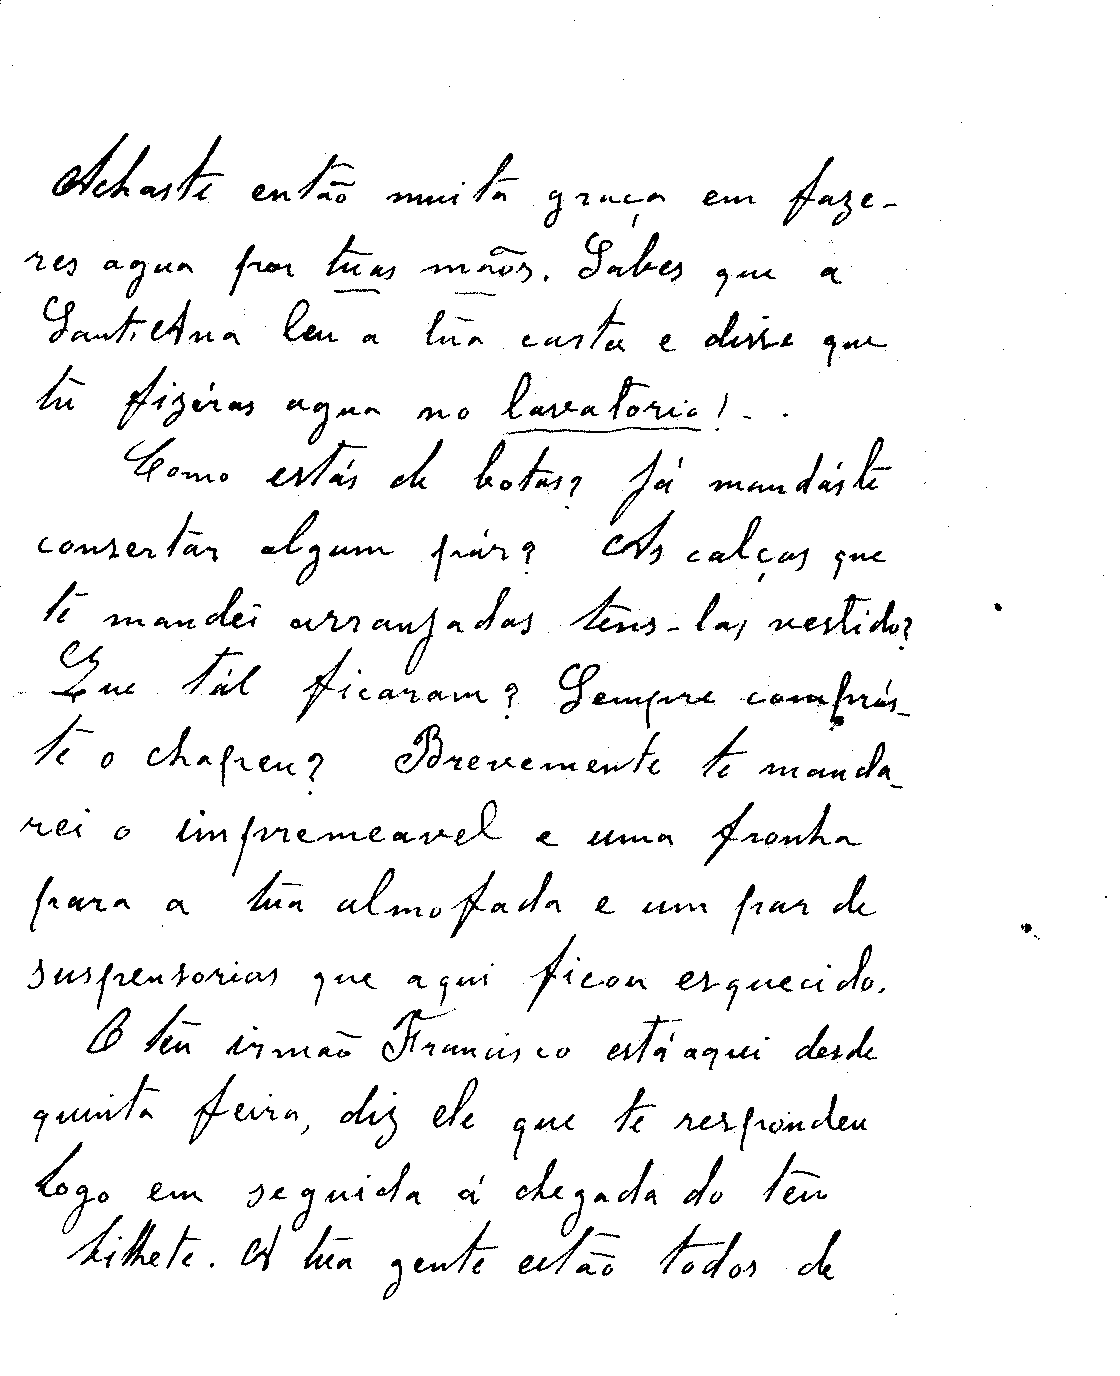 Achaste então muita graça em faze-
res agua por tuas mãos. Sabes que a
Sant'Ana leu a tua carta e disse que
tu fizéras agua no lavatorio! . .
Como estás de botas? Já mandáste
consertar algum pár? As calças que
te mandei arranjadas tens-las vestido?
Que tál ficaram? Sempre comprás-
te o chapeu? Brevemente te manda-
rei o impremeavel e uma fronha
para a tua almofada e um par de
suspensorios que aqui ficou esquecido.
O teu irmão Francisco está aqui desde
quinta feira, diz ele que te respondeu
logo em seguida á chegada do teu
bilhete. A tua gente estão todos de